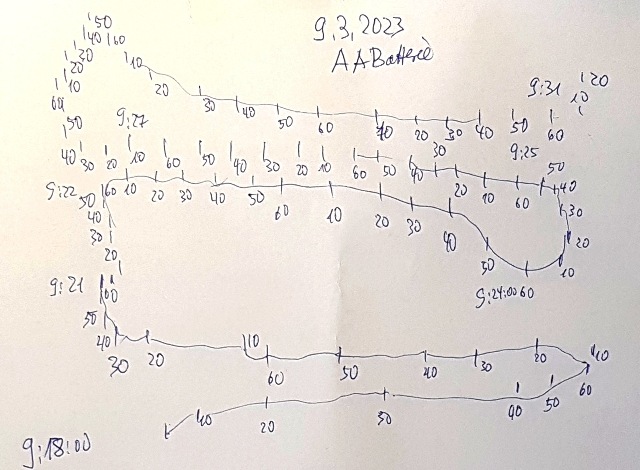 9.3.2023
AABatterie
50
40 60
30 10
20 20 9:31 20
10 30 40 50 60 10 20 30 40 50 60 10
60
50 9:27 30 9:25
40 30 20 10 60 50 40 30 20 10 60 50 40 20 10 60 50 40
9:22 50 60 10 20 30 40 50 60 10 20 30 40 30
40
30 20
20 50 10
9:21 60 9:24:00 60
50
40 30 20 10 60 50 40 30 20 10
60
10 20 30 40 50
9:18:00